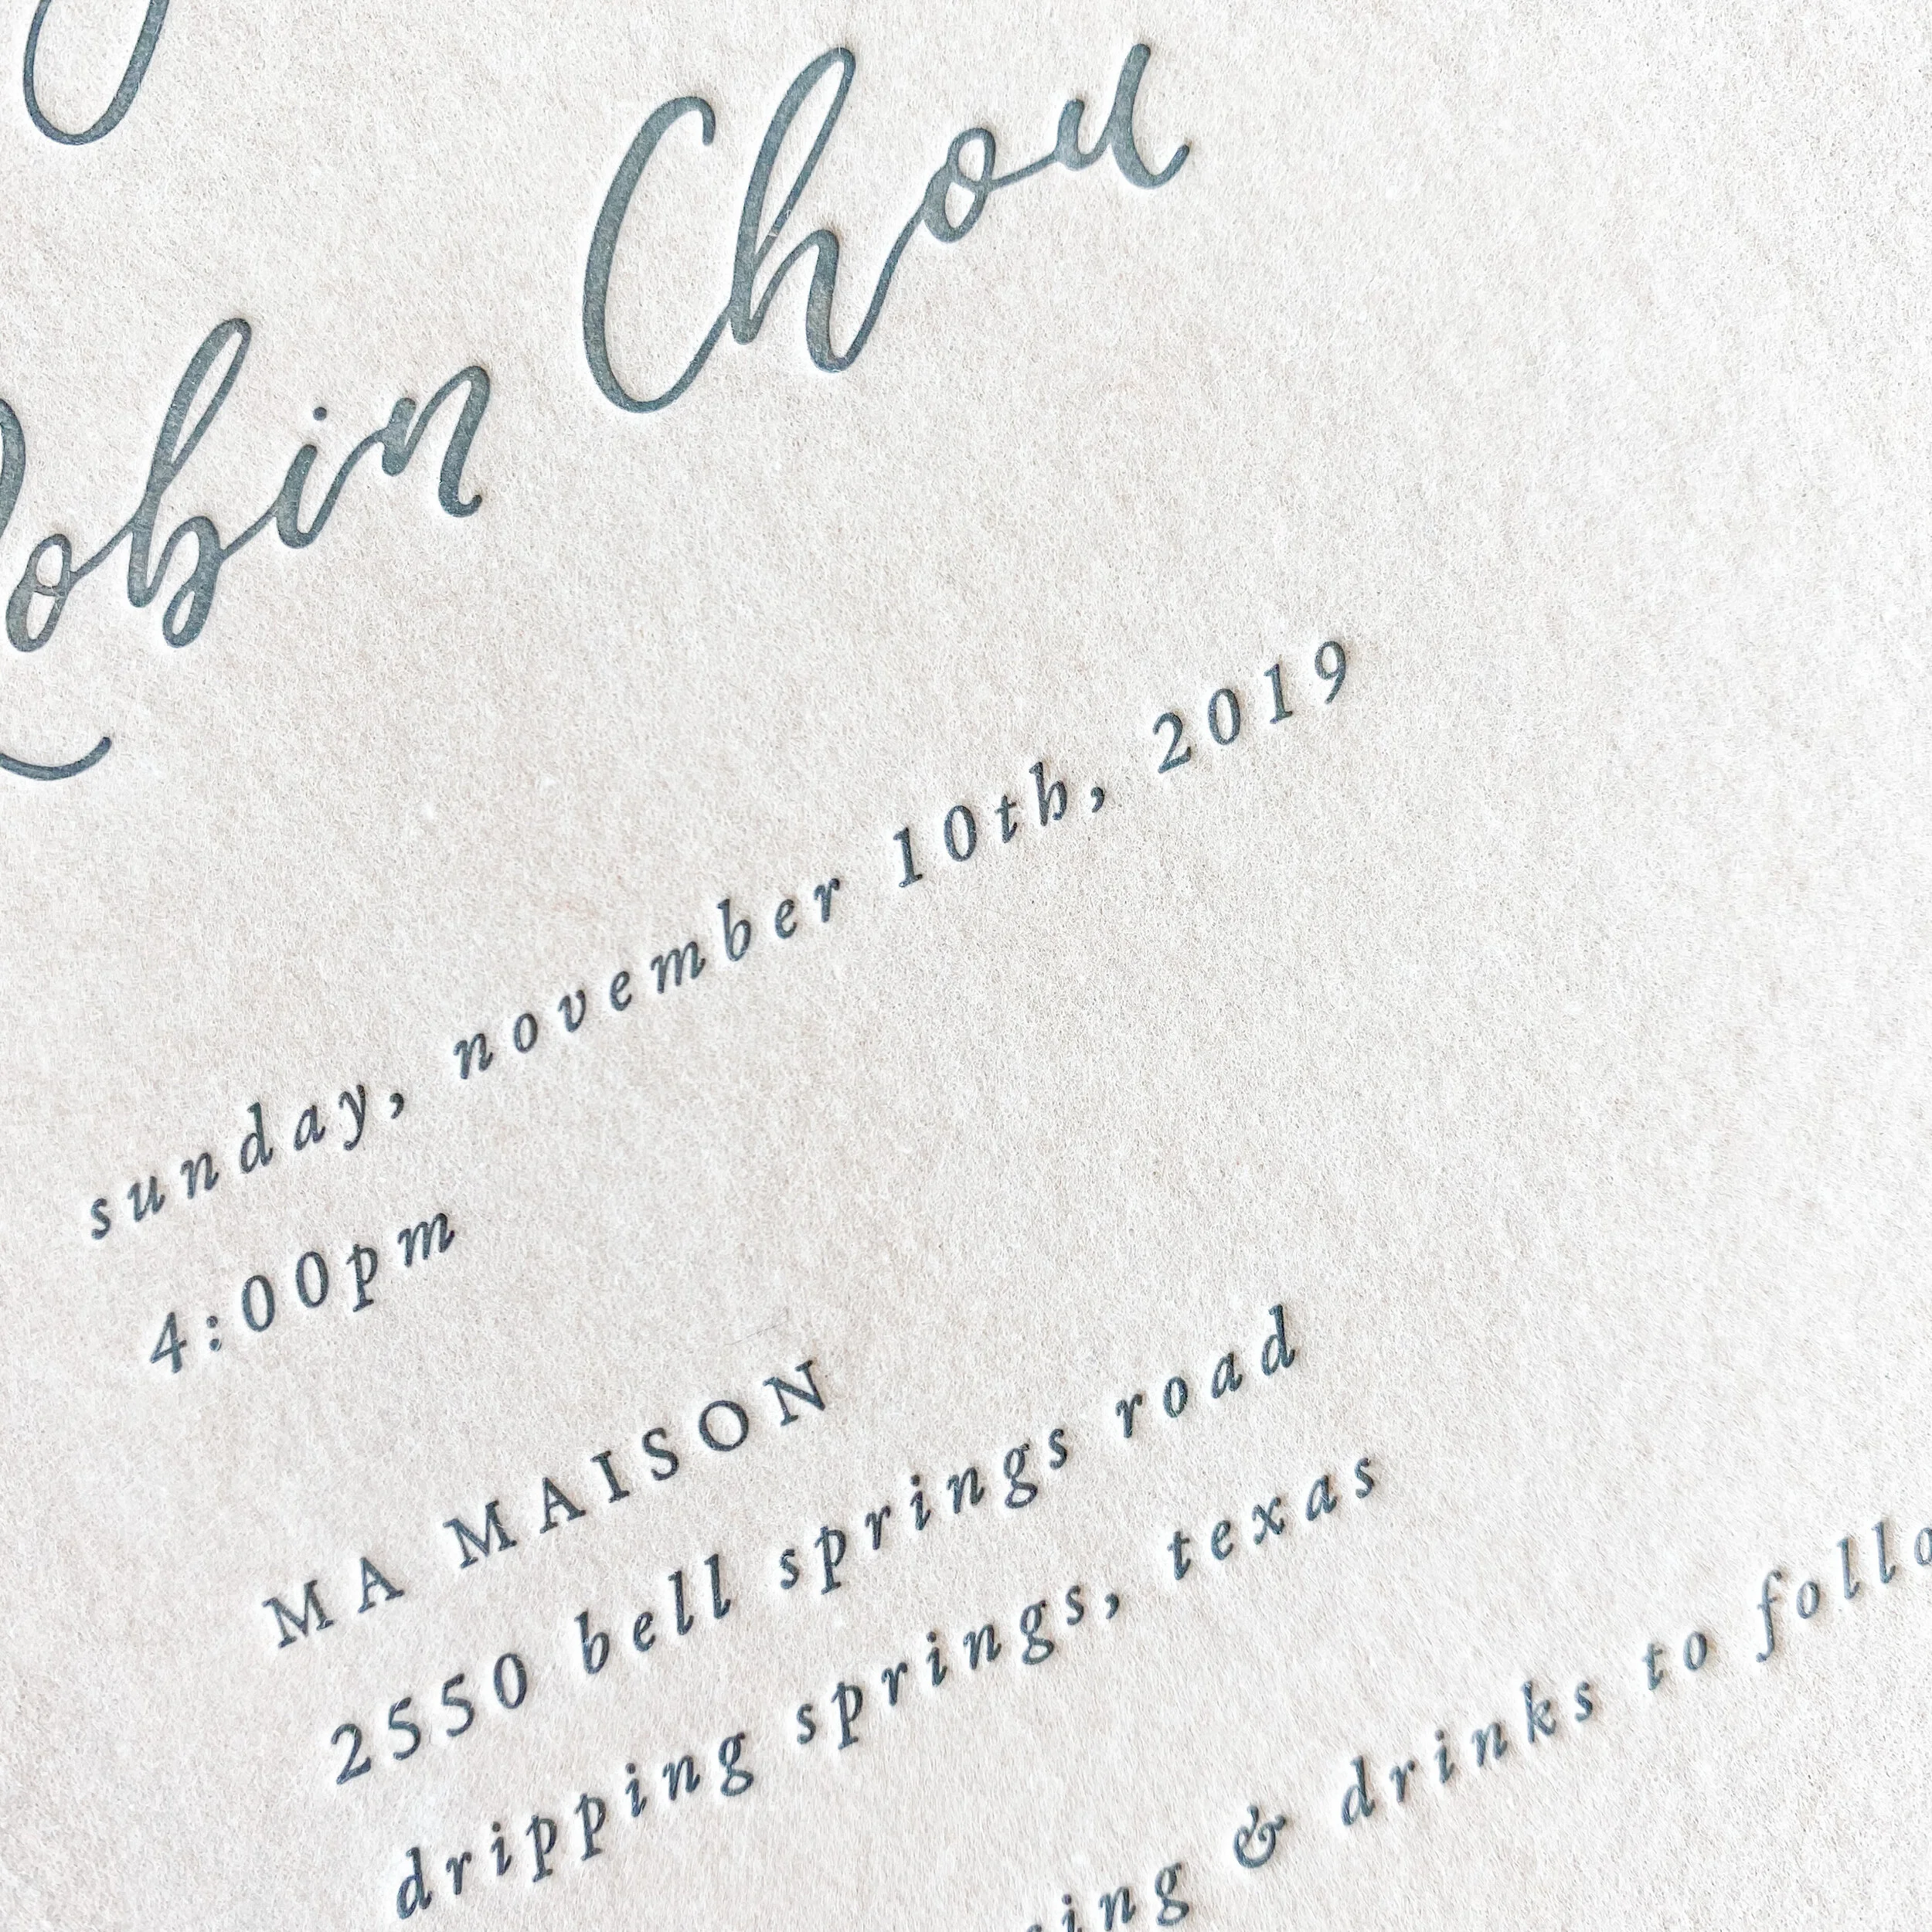 Robin Chou
sunday, november 10th, 2019
4:00pm
MA MAISON
2550 bell springs road
dripping springs, texas
& drinks to